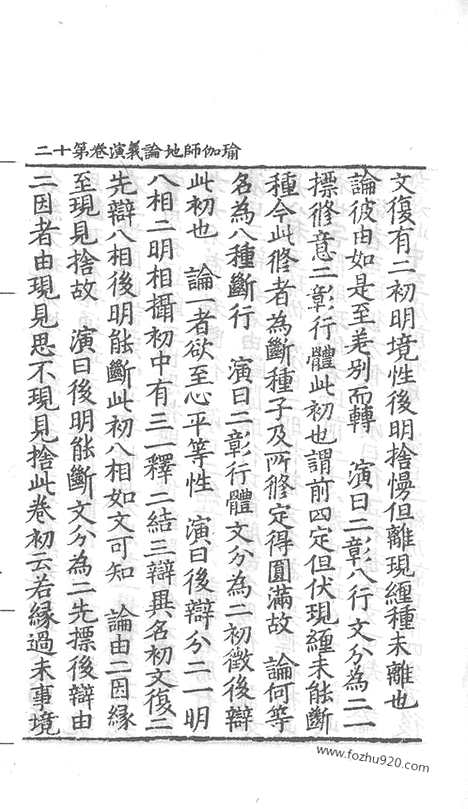 瑜伽師地論義演卷第十二
文復有二初明境性後明捨慢但離現纏種未離也
論彼由如是至差別而轉　演曰二彰八行文分為二一
標修意二彰行體此初也謂前四定但伏現纏未能斷
種今此修者為斷種子及所修定得圓滿故　論何等
名為八種斷行　演曰二彰行體文分為二初徵後辯
此初也　論一者欲至心平等性　演曰後辯分二一明
八相二明相攝初中有三一釋二結三辯異名初文復二
先辯八相後明能斷此初八相如文可知　論由二因緣
至現見捨故　演曰後明能斷文分為二先標後辯由
二因者由現見思不現見捨此卷初云若緣過未事境
www.fozhu920.com